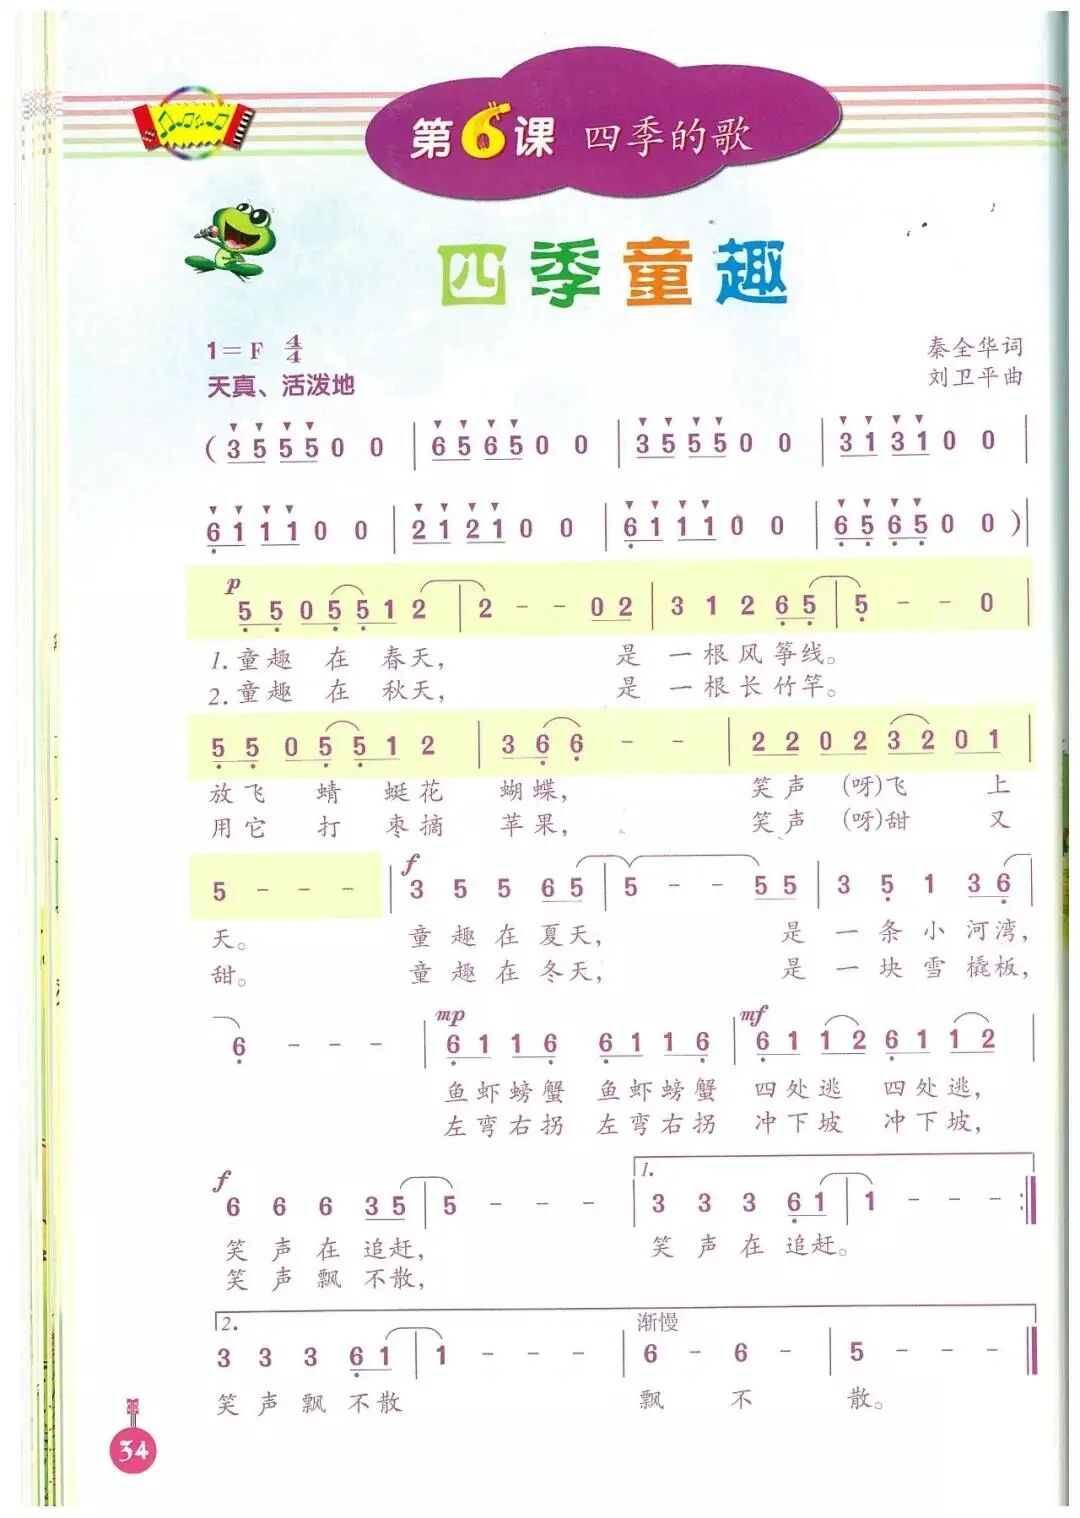 第6课 四季的歌
四季童趣
1=F 4/4
秦全华词
天真、活泼地
刘卫平曲
( 3 5 5 5 0 0 | 6 5 6 5 0 0 | 3 5 5 5 0 0 | 3 1 3 1 0 0 |
6 1 1 1 0 0 | 2 1 2 1 0 0 | 6 1 1 1 0 0 | 6 5 6 5 0 0 ) |
p
5 5 0 5 5 1 2 | 2 - - 0 2 | 3 1 2 6 5 | 5 - - 0 |
1. 童趣 在 春天, 是 一根风筝线。
2. 童趣 在 秋天, 是 一根长竹竿。
5 5 0 5 5 1 2 | 3 6 6 - - | 2 2 0 2 3 2 0 1 |
放飞 蜻 蜓花 蝴蝶, 笑声 (呀)飞 上
用它 打 枣摘 苹果, 笑声 (呀)甜 又
f
5 - - - | 3 5 5 6 5 | 5 - - 5 5 | 3 5 1 3 6 |
天。 童趣在夏天, 是 一条小河湾,
甜。 童趣在冬天, 是 一块雪橇板,
mp mf
6 - - - | 6 1 1 6 6 1 1 6 | 6 1 1 2 6 1 1 2 |
鱼虾螃蟹 鱼虾螃蟹 四处逃 四处逃,
左弯右拐 左弯右拐 冲下坡 冲下坡,
f 1.
6 6 6 3 5 | 5 - - - | 3 3 3 6 1 | 1 - - - :|
笑声在追赶, 笑声在追赶。
笑声飘不散,
2. 渐慢
3 3 3 6 1 | 1 - - - | 6 - 6 - | 5 - - - ||
笑声飘不散 飘 不 散。
34